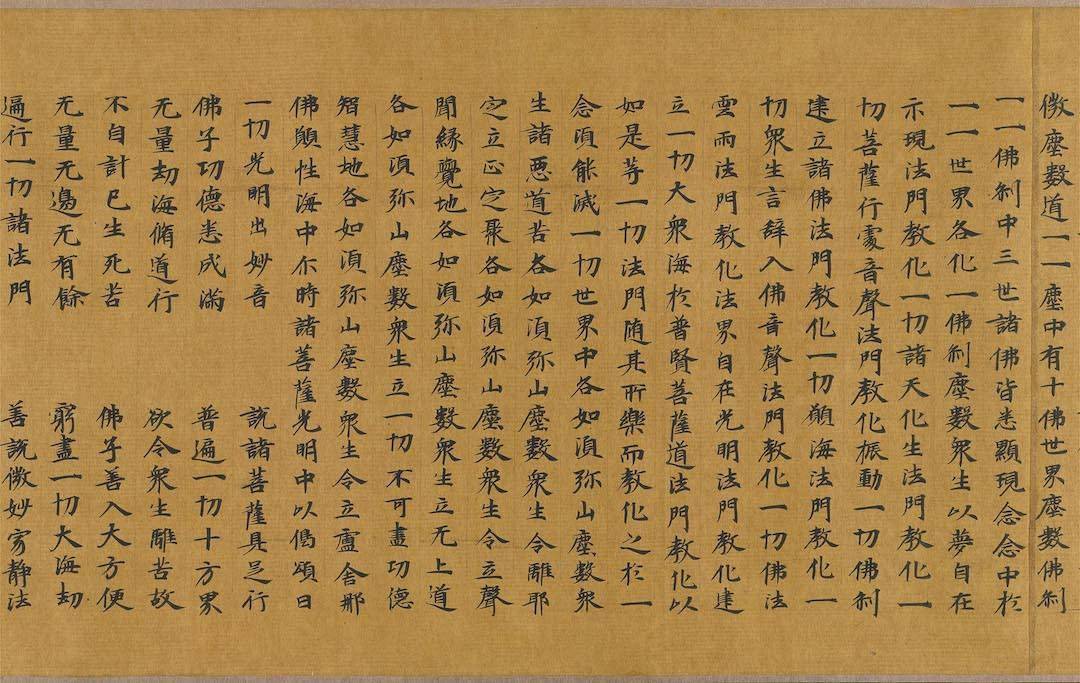 微塵數道一一塵中有十佛世界塵數佛刹
一一佛刹中三世諸佛皆悉顯現念念中於
一一世界各化一佛刹塵數衆生以夢自在
示現法門教化一切諸天化生法門教化一
切菩薩行處音聲法門教化振動一切佛刹
建立諸佛法門教化一切願海法門教化一
切衆生言辭入佛音聲法門教化一切佛法
雲雨法門教化法界自在光明法門教化建
立一切大衆海於普賢菩薩道法門教化以
如是等一切法門随其所樂而教化之於一
念頃能滅一切世界中各如須弥山塵數衆
生諸惡道苦各如須弥山塵數衆生令離耶
定立正定聚各如須弥山塵數衆生令立聲
聞縁覺地各如須弥山塵數衆生立无上道
各如須弥山塵數衆生立一切不可盡功德
智慧地各如須弥山塵數衆生令立盧舍那
佛願性海中尒時諸菩薩光明中以偈頌曰
一切光明出妙音 說諸菩薩具足行
佛子功德悉成滿 普遍一切十方界
无量劫海脩道行 欲令衆生離苦故
不自計己生死苦 佛子善入大方便
无量无邊无有餘 窮盡一切大海劫
遍行一切諸法門 善說微妙寂靜法